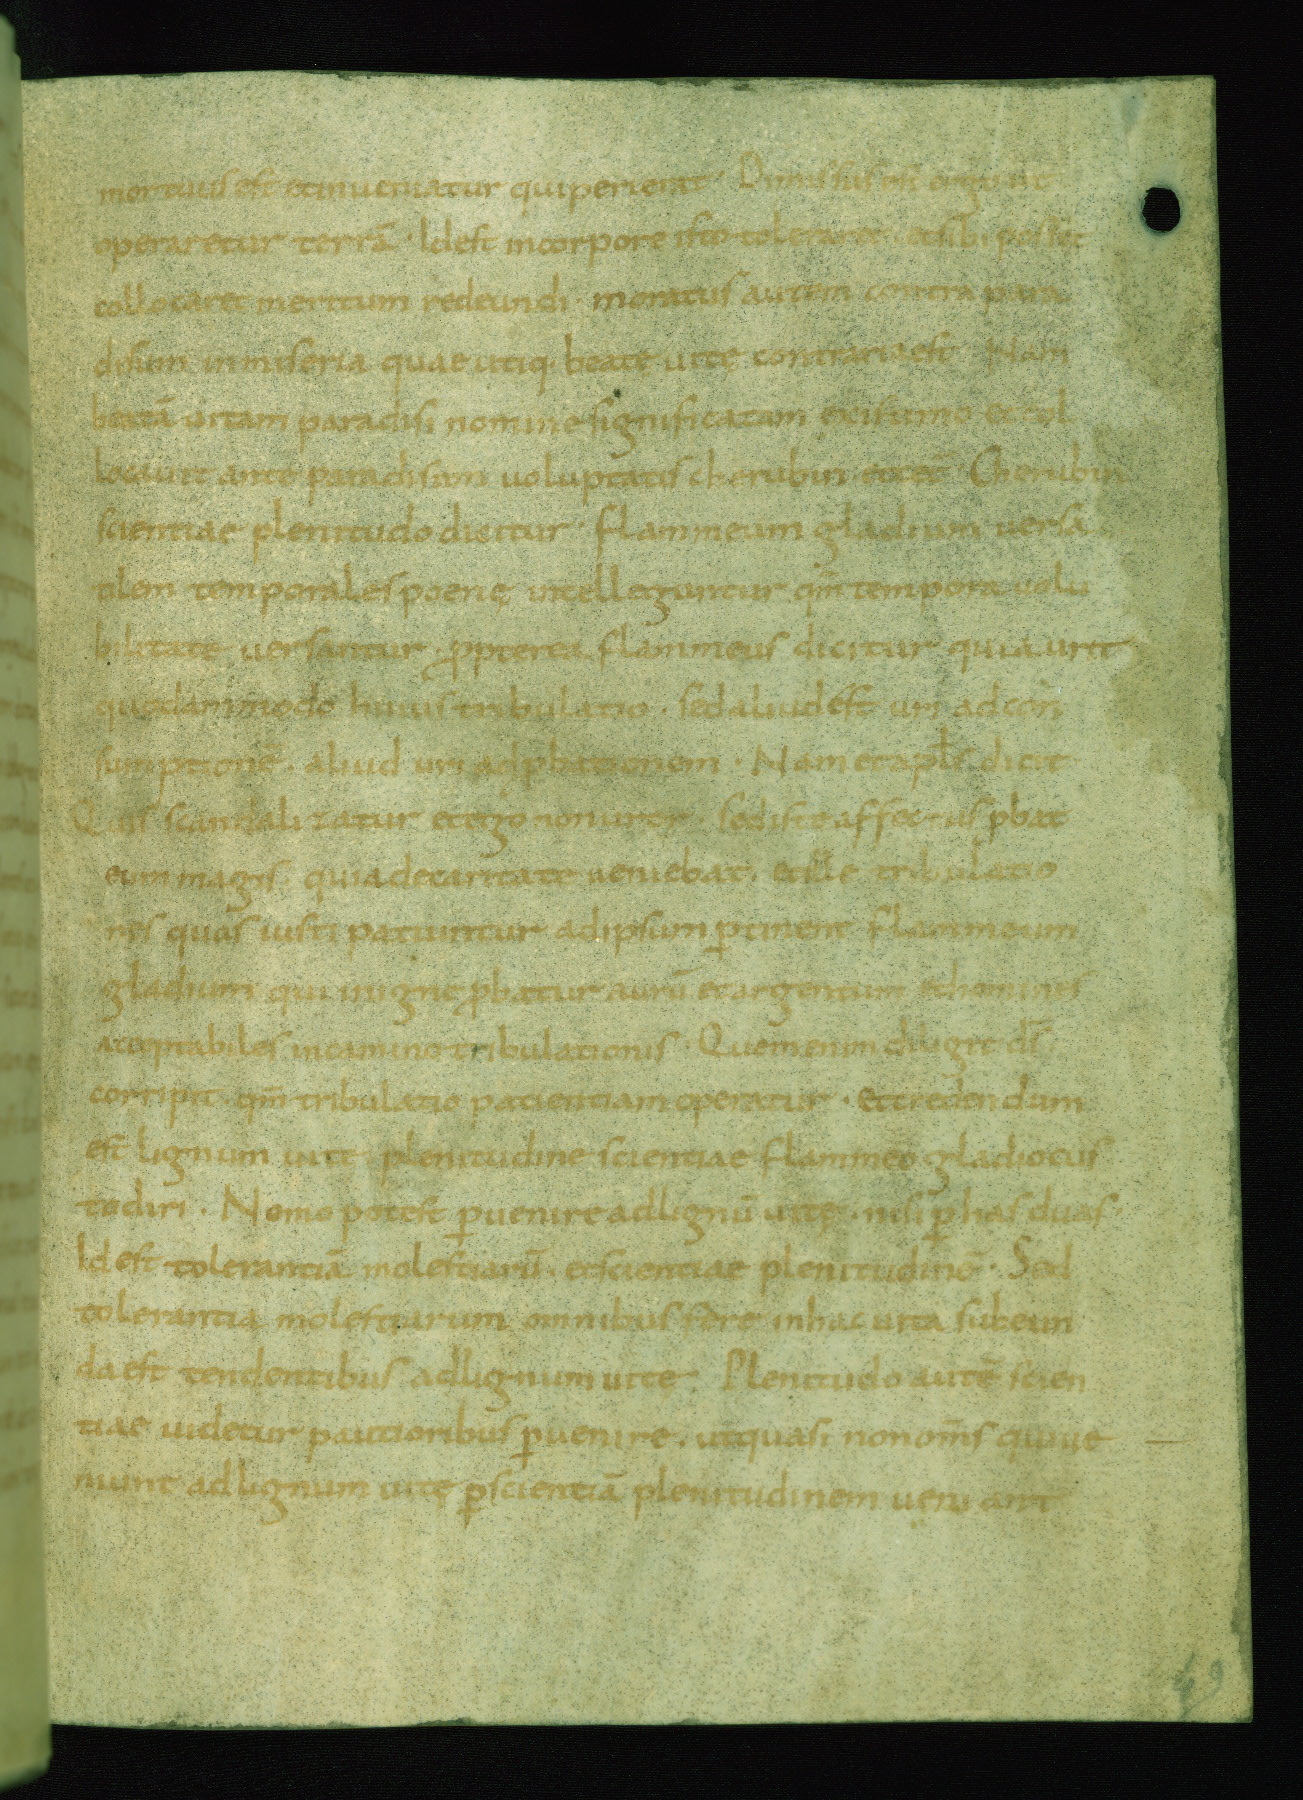 mortuus est et inueniatur qui perierat. Dimissus est ergo ut
operaretur terrā. Id est in corpore isto toleraret. et sibi posset
collocaret meritum redeundi. moratus autem contra para
disum in miseria quae utiq. beate uitę contraria est. Nam
beatā uitam paradisi nomine significatam existimo et col
locauit ante paradisum uoluptatis cherubin et cet̄ Cherubin
scientiae plenitudo dicitur. flammeum gladium uersa
tilem temporales poenę intelleguntur qm̄ tempora uolu
bilitate uersantur. ꝓpterea flammeus dicitur quia urit
quodammodo huius tribulatio. sed aliud est uri ad con
sumptionē. aliud uri ad ꝓbationem. Nam et apl̄s dicit
Quis scandalizatur et ego non uror. sed iste affectus ꝓbat
eum magis. quia de caritate ueniebat. et ille tribulatio
nes quas iusti patiuntur ad ipsum ꝑtinent flammeum
gladium qui in igne ꝓbatur aurū et argentum et homines
acceptabiles in camino tribulationis. Quem enim diligit dn̄s
corripit. qm̄ tribulatio patientiam operatur. et credendum
est lignum uite plenitudine scientiae flammeo gladio cus
todiri. Nemo potest ꝑuenire ad lignū uitę. nisi ꝑ has duas
Id est tolerantiā molestiarū. et scientiae plenitudinē. Sed
tolerantia molestiarum omnibus fere in hac uita subeun
da est tendentibus ad lignum uite. Plenitudo autē scien
tiae uidetur paucioribus ꝑuenire. ut quasi non om̄s qui ue
niunt ad lignum uitę ꝑ scientiā plenitudinem ueniant
49